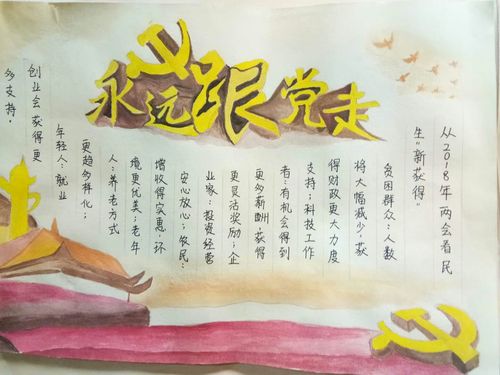 永远跟党走
从2018年"两会看民
生"新获得"
贫困群众：人数
将大幅减少，获
得财政更大力度
支持；科技工作
者：有机会得到
更多薪酬获得
更灵活奖励；企
业家：投资经营
安心放心；农民：
增收得实惠，环
境更优美；老年
人：养老方式
更趋多样化；
年轻人：就业
创业会获得更
多支持。